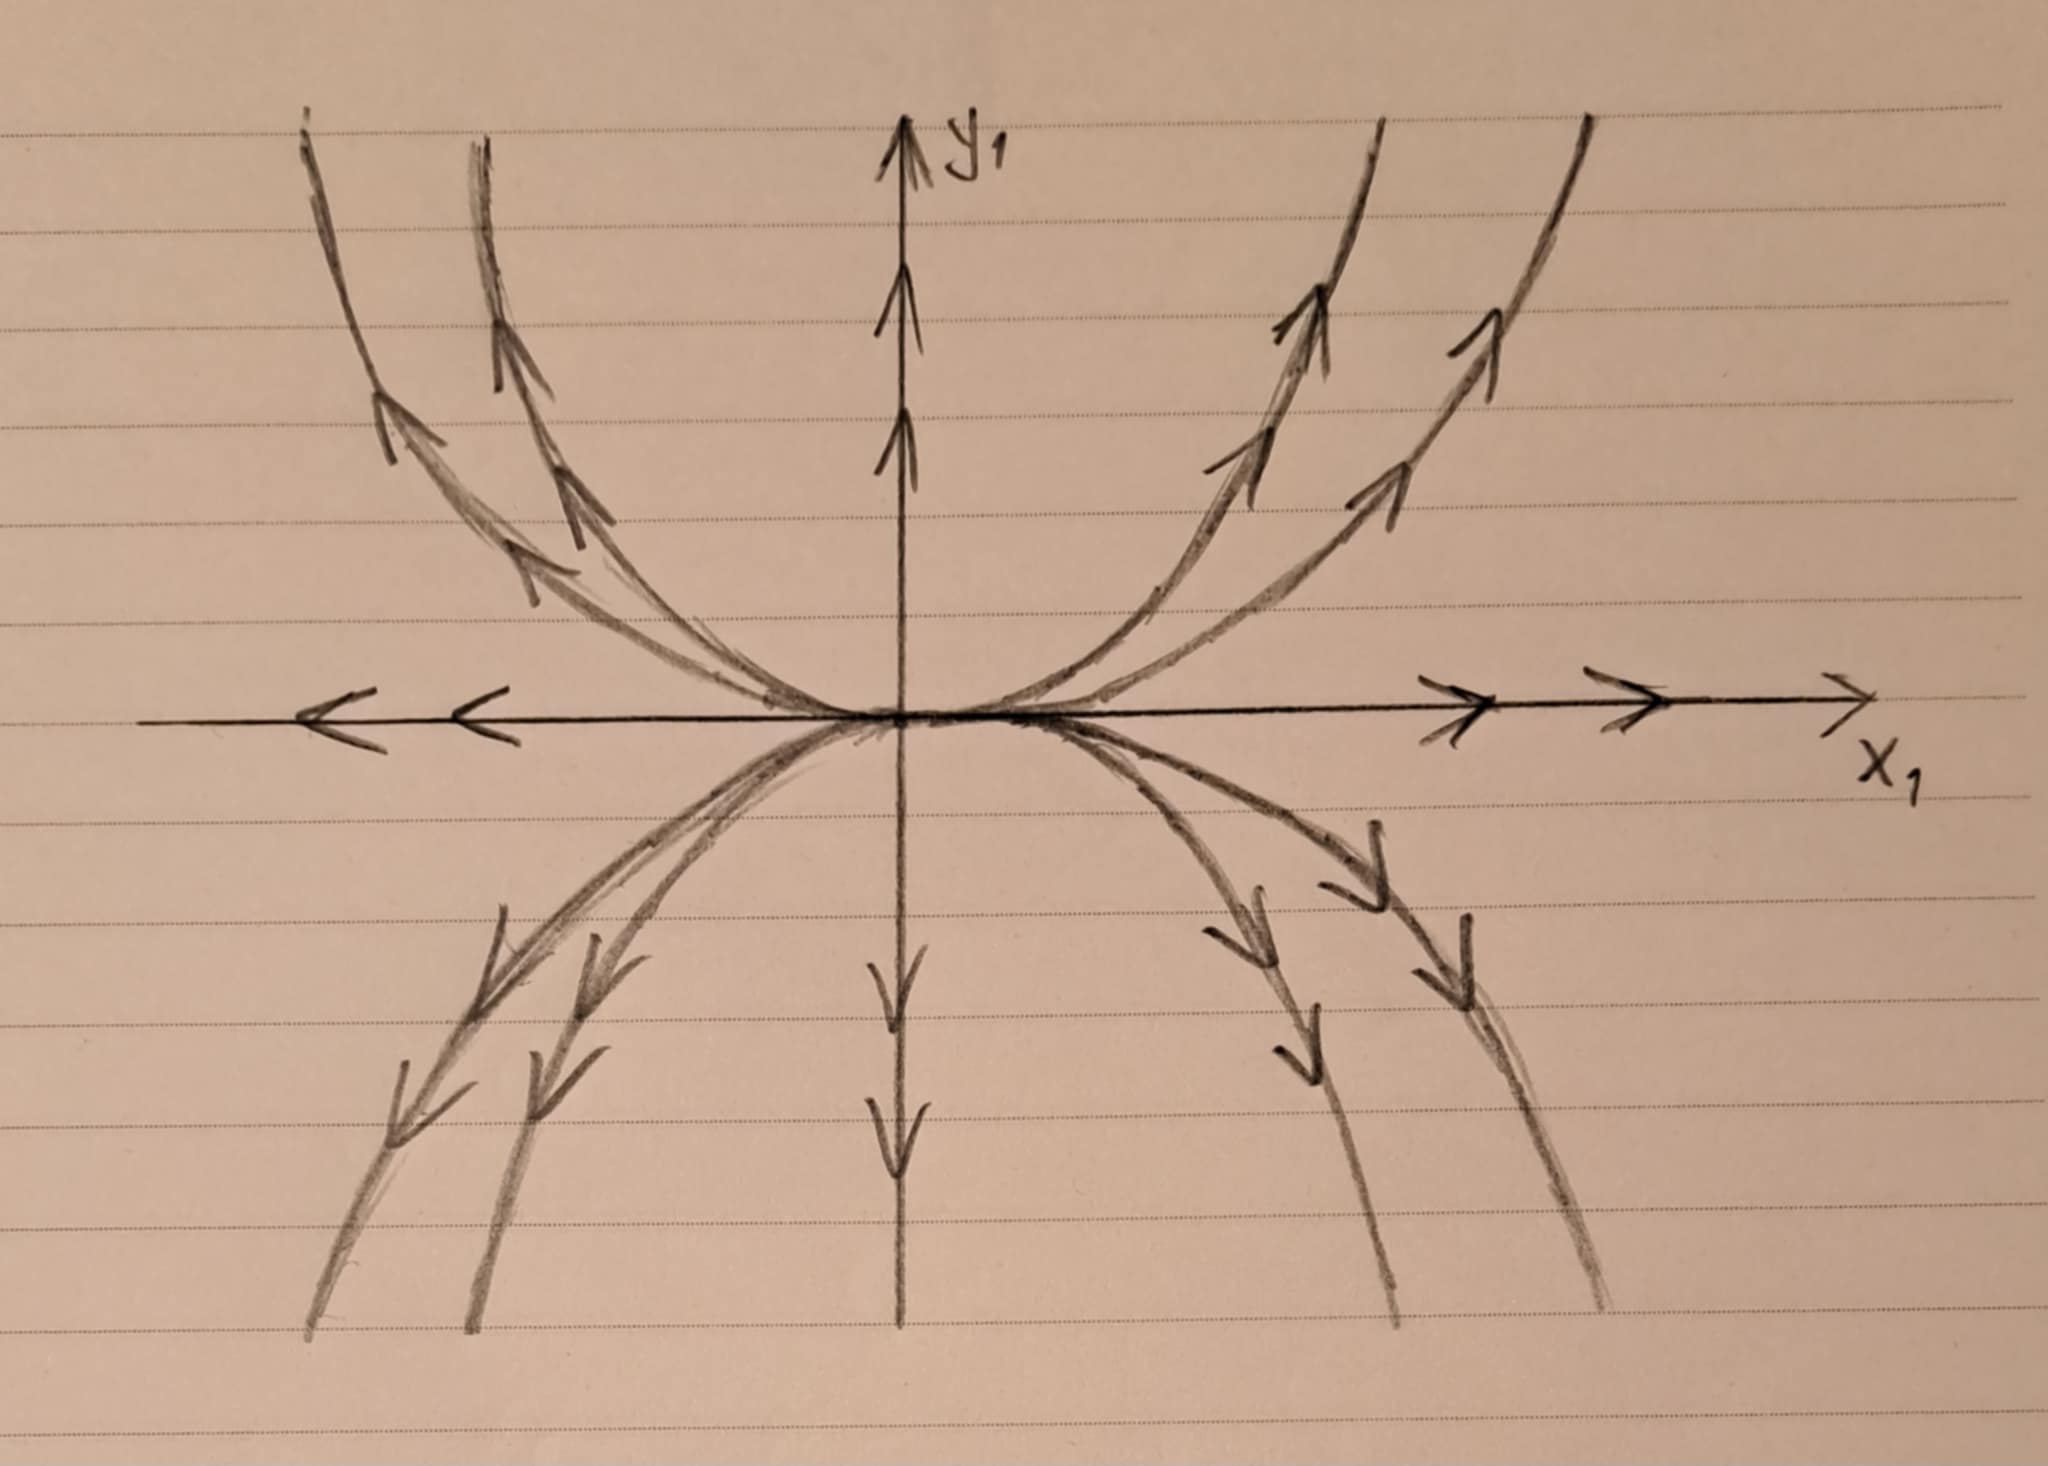 y₁
x₁